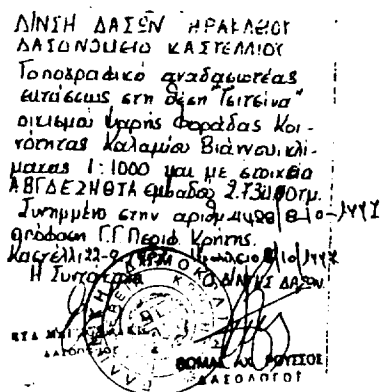 Δ/ΝΣΗ ΔΑΣΩΝ ΗΡΑΚΛΕΙΟΥ
ΔΑΣΟΝΟΜΕΙΟ ΚΑΣΤΕΛΛΙΟΥ
Τοπογραφικό αναδασωτέας
εκτάσεως στη θέση "Τσιτσίνα"
οικισμού Ψαρής Φοράδας Κοι-
νότητας Καλαμίου Βιάννου κλί-
μακας 1:1000 και με στοιχεία
ΑΒΓΔΕΖΗΘΙΑ εμβαδού τμ.
Συνημμένο στην αριθμ. 4498/8-10-1997
απόφαση Γ.Γ. Περιφ. Κρήτης.
Καστέλλι 22-9 8/10/1997
Η Συντάξασα Ο Δ/ΝΤΗΣ ΔΑΣΩΝ
ΔΑΣΟΠΟΝΟΣ
ΘΩΜΑΣ ΑΧ. ΡΟΥΣΣΟΣ
ΔΑΣΟΛΟΓΟΣ